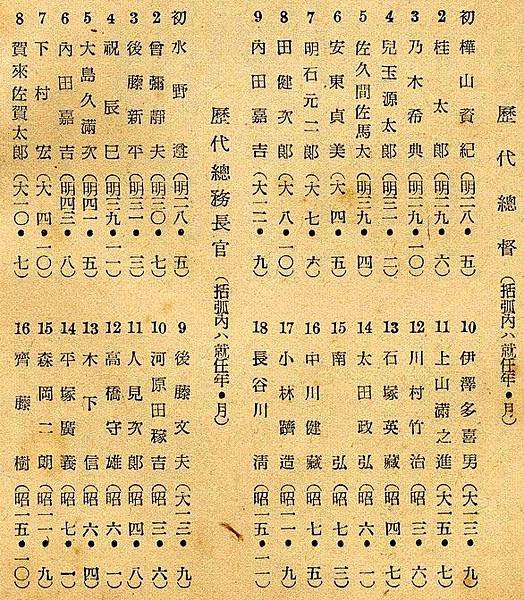 歷代總督(括弧內ハ就任年・月)
初 樺山資紀(明二八・五)
2 桂太郎(明二九・六)
3 乃木希典(明二九・一〇)
4 兒玉源太郎(明三一・二)
5 佐久間佐馬太(明三九・四)
6 安東貞美(大四・五)
7 明石元二郎(大七・六)
8 田健次郎(大八・一〇)
9 內田嘉吉(大一二・九)
10 伊澤多喜男(大一三・九)
11 上山滿之進(大一五・七)
12 川村竹治(昭三・六)
13 石塚英藏(昭四・七)
14 太田政弘(昭六・一)
15 南弘(昭七・三)
16 中川健藏(昭七・五)
17 小林躋造(昭一一・九)
18 長谷川淸(昭一五・一一)
歷代總務長官(括弧內ハ就任年・月)
初 水野遵(明二八・五)
2 曾彌靜夫(明三〇・七)
3 後藤新平(明三一・三)
4 祝辰巳(明三九・一一)
5 大島久滿次(明四一・五)
6 內田嘉吉(明四三・八)
7 下村宏(大四・一〇)
8 賀來佐賀太郎(大一〇・七)
9 後藤文夫(大一三・九)
10 河原田稼吉(昭三・六)
11 人見次郎(昭四・八)
12 高橋守雄(昭六・一)
13 木下信(昭六・四)
14 平塚廣義(昭七・一)
15 森岡二朗(昭一一・九)
16 齊藤樹(昭一五・一〇)